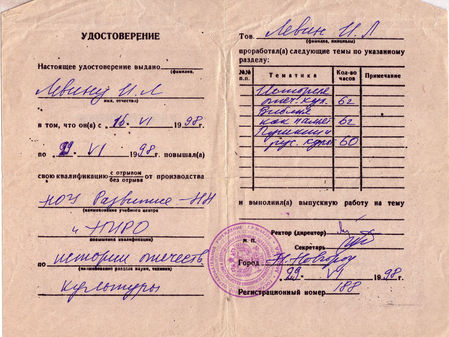 УДОСТОВЕРЕНИЕ
Настоящее удостоверение выдано
(фамилия,
Левину И.Л
имя, отчество)
в том, что он(а) с 16. VI 1998г.
по 29. VI 1998г. повышал(а)
свою квалификацию с отрывом от производства
без отрыва
НОЧ Развитие-НН
(наименование учебного центра
и НИРО
повышения квалификации)
по истории отечеств
(наименование раздела науки, техники)
культуры
Тов. Левин И.Л
(фамилия, инициалы)
проработал(а) следующие темы по указанному
разделу:
№№ п.п. Тематика Кол-во часов Примечание
История
отеч. кул. 6г
Библия
как памят 6г
Пушкин и
рус. культ 60
и выполнил(а) выпускную работу на тему
Ректор (директор)
М. П.
Секретарь
Город Н.Новгород
29. VI 1998г.
Регистрационный номер 188